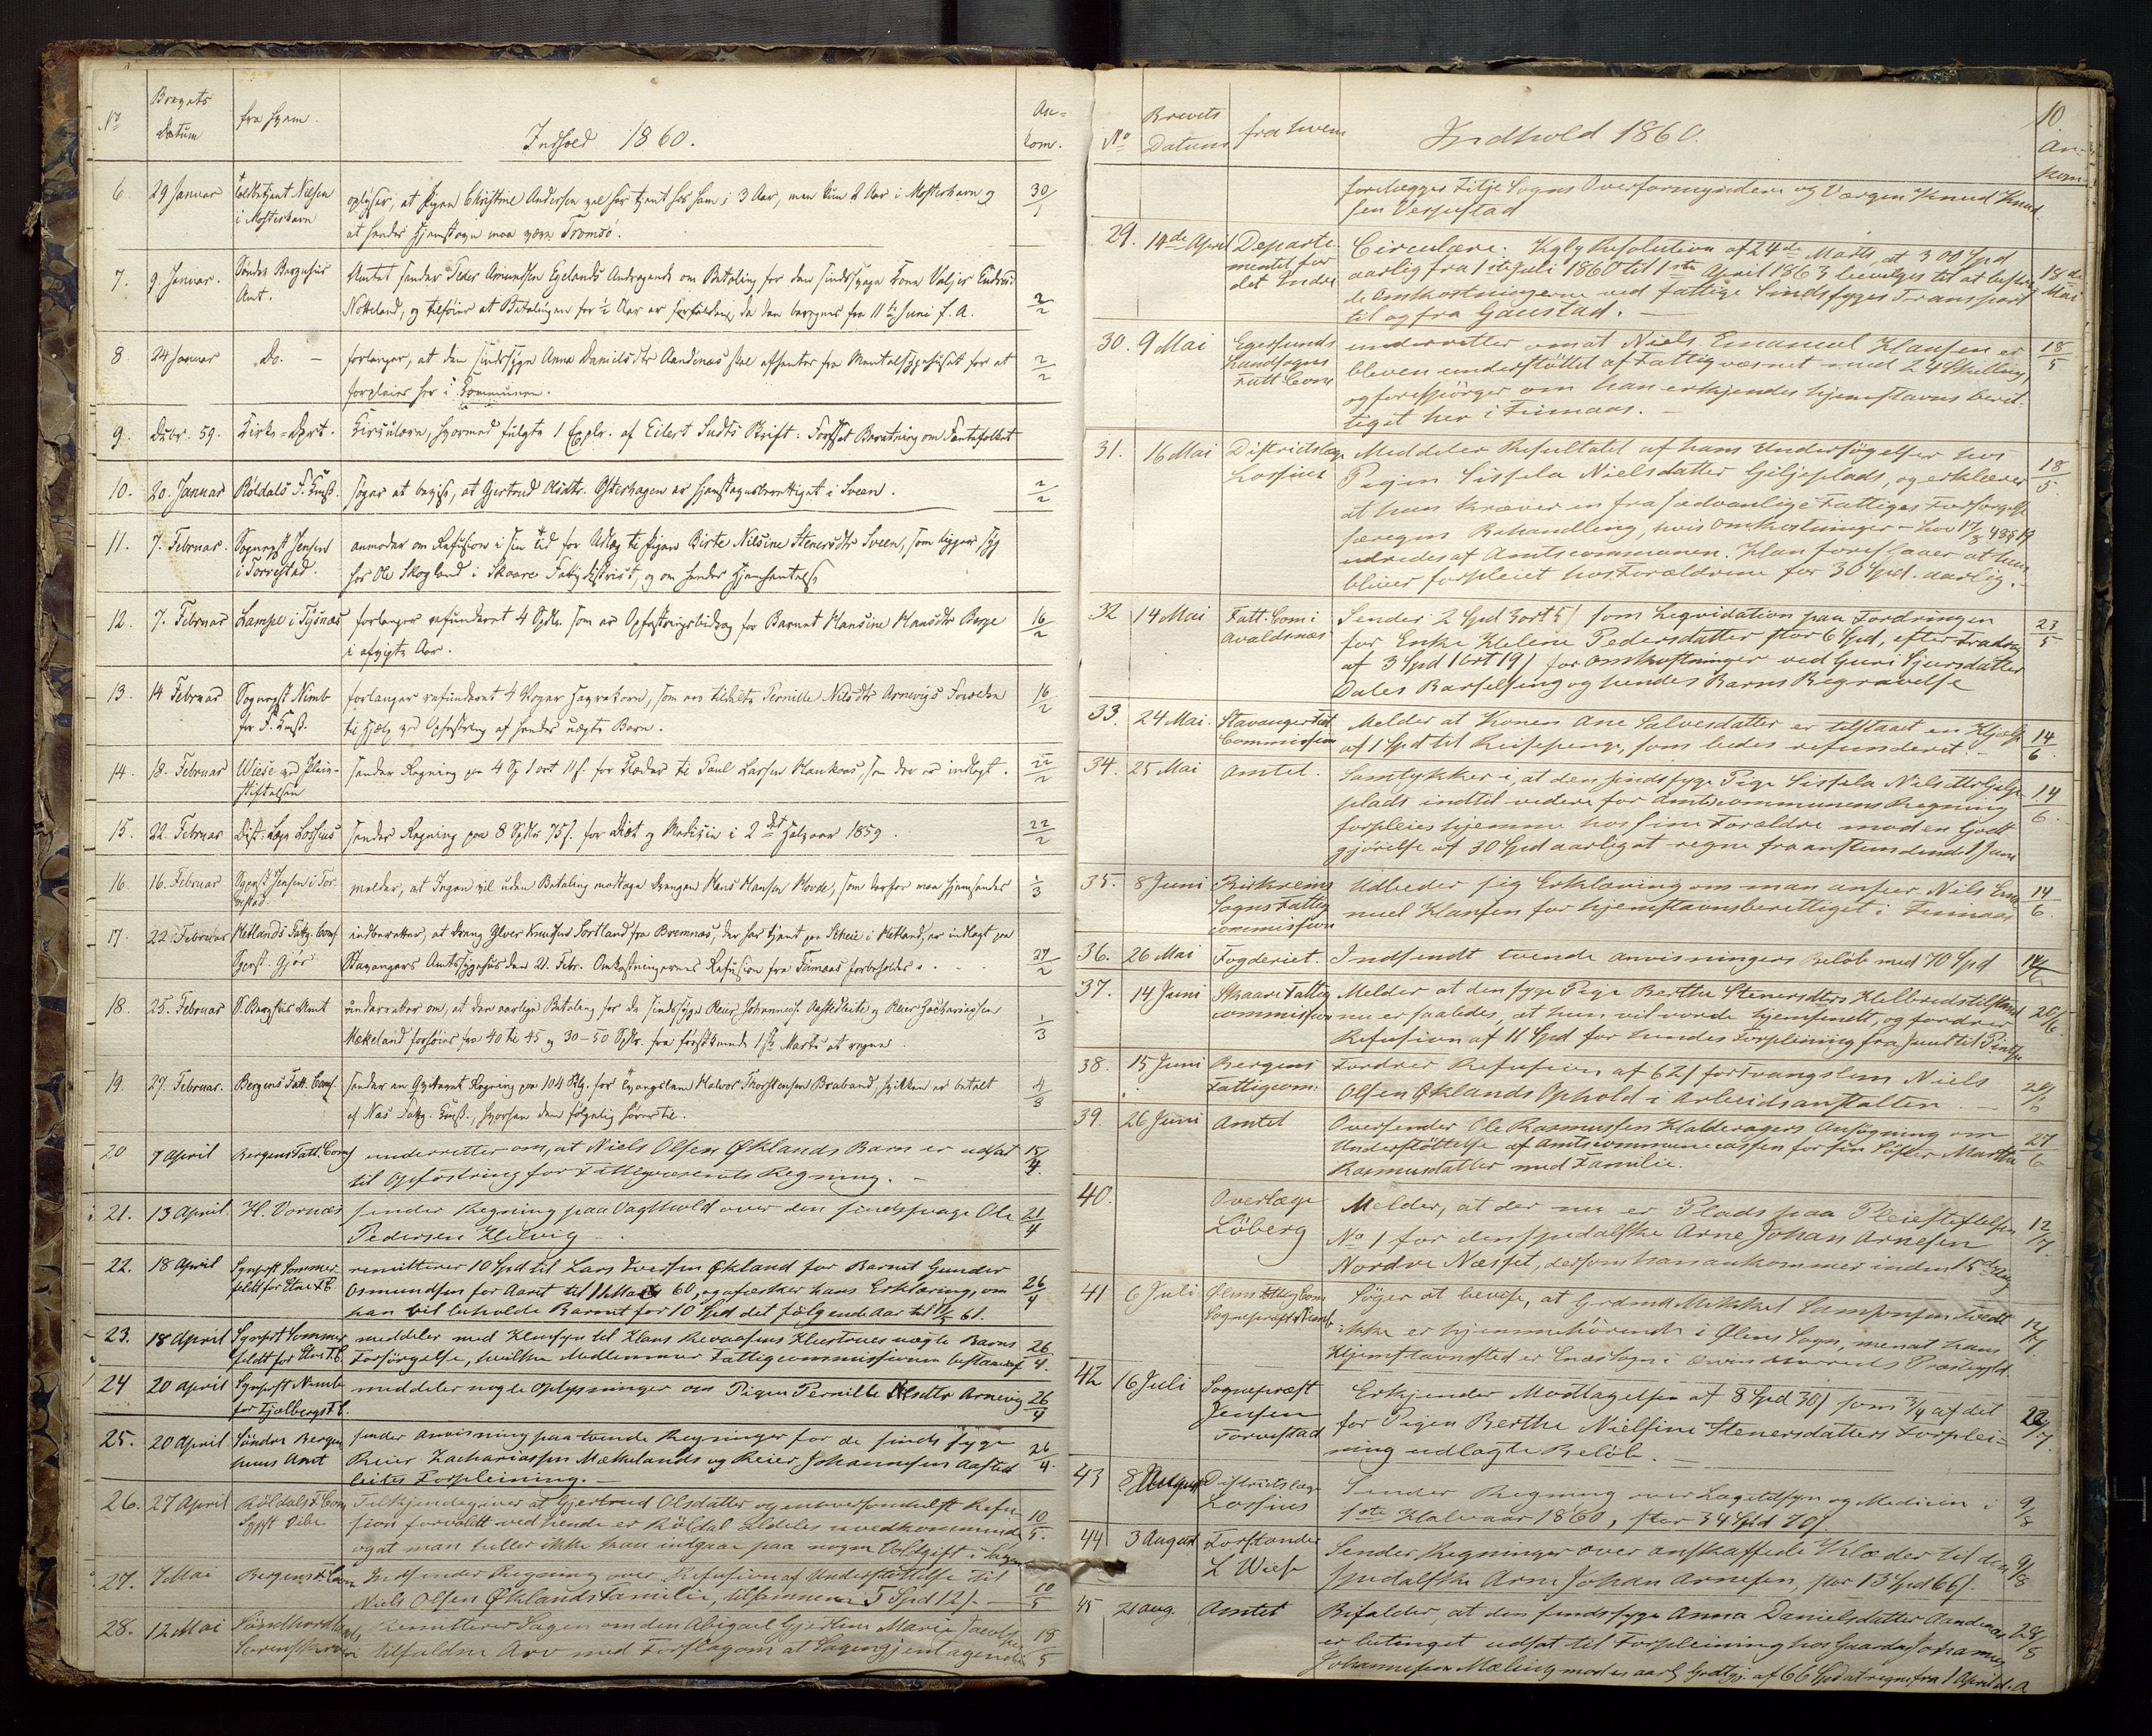 No
Brevets
Datum
fra hvem.
Indhold 1860.
An-
kom.
6. 29 Januar
i Mosterhavn
oplyser, at Pigen Christine Andersen vel har tjent hos ham i 3 Aar, men kun 2 Aar i Mosterhavn og
at hendes Hjemstavn maa være Tromsö.
30/1
7. 9. Januar. Söndre Bergenhus
Amt.
Amtet sender Peder Amundsen Egelands Andragende om Betaling for den sindssvage Kone
Nötteland, og tilföier at Betalingen for 1/2 Aar er forfalden, da den beregnes fra 11te Juni f. A.
2/2
8 24 Januar Do. —
forlanger, at den sindssyge Anna Danielsdtr Aandenæs skal afhentes fra Mentalsygehuset for at
forpleies her i Kommunen.
2/2
9. Dcbr. 59. Kirke-Dprt. Circulære, hvormed fulgte 1 Explr. af Eilert Sundts Skrift: Fortsat Beretning om Fantefolket
10. 20. Januar Röldals F. Komss. söger at bevise, at Gjertrud Olsdtr. er hjemstavnsberettiget i Sveen.
2/2
11. 7. Februar. Sogneprst Jensen
i Torvestad.
anmoder om Refusion i sin Tid for Udlæg til Pigen Birte Nilsine Stenersdtr Sveen, som ligger syg
hos Ole Skogland i Skaare Fattigdistrict, og om hendes Hjemhentelse
12. 7. Februar Lampe i Tysnæs
forlanger refunderet 4 Spdlr. som er Opfostringsbidrag for Barnet Hansine Hansdtr Berge
i afvigte Aar.
16/2
13. 14 Februar Sogneprst Nimb
for F. Komss.
forlanger refunderet 4 Voger Havrekorn, som ere tildelte Pernille Nilsdtr Arnevigs Forældre
til Hjælp ved Opfostring af hendes uægte Barn.
16/2
14. 18. Februar Wiese ved Pleie-
stiftelsen
sender Regning paa 4 Sp 1 ort 11 s. for Klæder til Paul Larsen som der er indlagt.
22/2
15. 22. Februar Dist. Læge Lossius sender Regning paa 8 Spdlr 75 s. for Diæt og Medicin i 2det Halvaar 1859.
22/2
16. 16. Februar Sgprst Jensen i Tor-
vestad.
melder, at Ingen vil uden Betaling modtage Drengen Hans Hansen Hovde, som derfor maa hjemsendes
1/3
17. 22. Februar Hetlands Fattg. Coms
Sgprst. Gjör
indberetter, at Dreng Knudsen Tortland fra Bremnæs, der har tjent paa Scheie i Hetland, er indlagt paa
Stavangers Amtssygehus den 21. Febr. Omkostningernes Refusion fra Finnaas forbeholdes.
27/2
18. 25. Februar S. Berghus Amt
underretter om, at den aarlige Betaling for de sindssyge Reier Johannesen Aastedleite og Reier Zachariassen
Mækeland forhöies fra 40 til 45 og 30-50 Spdlr. fra förstkomende 1ste Marts at regne.
1/3
19. 27. Februar. Bergens Fatt. Coms.
sender en Regning paa 104 for Tvangslem Halvor Thorstensen Braband, hvilken er betalt
af Næs Fattg. Komss., hvorhen den fölgelig hörer til.
4/3
20 7 April Bergens Fatt. Coms underretter om, at Niels Olsen Öklands Barn er udsat
til Opfostring for Fattigvæsenets Regning. –
15/4.
21. 13 April. H. Vornæs sender Regning paa Vagthold over den sindssvage Ole
Pedersen Helvig
21/4
22. 18 April Sgnprst Sommer-
feldt for Etne F.C.
remitterer 10 Spd til Lars Iversen Økland for Barnet Gunder
Osmundsen for Aaret til 11 Marts 60, og afæsker hans Erklæring, om
han vil beholde Barnet for 10 Spd det fölgende Aar til 61.
26/4
23. 18 April Sgnprst Sommer
feldt for Etne F.C.
meddeler med Hensyn til Hans Hustrues uægte Barns
Forsörgelse, hvilke Medlemmer Fattigcommissionen bestaar af
26/4.
24 20 April Sgnprst Nimb
for Fjælbergs F.C.
meddeler nogle Oplysninger om Pigen Pernille Nilsdtr Arnevig
26/4
25. 20 April Söndre Bergen
huus Amt
sender Anvisning paa tvende Regninger for de sindssyge
Reier Zachariassen Mækelands og Reier Johannesen Aasted
leites Forpleining. —
26/4.
26. 27 April Röldals F. Com
Sgprst Vibe
Tilkjendegiver at Gjertrud Olsdatter og enhversomhelst Refu
sion forvoldt ved hende er Röldal aldeles uvedkommende
og at man heller ikke kan indgaae paa nogen Voldgift i Sagen
10/5.
27. 7 Mai Bergens F. Com Indsender Regning over Refusion af Understöttelse til
Niels Olsen Öklands Familie, tilsammen 5 Spd 12 s. —
10/5
28. 12 Mai Söndhordlands
Sorenskriveri
Remitterer Sagen om den Abigael Gjertine Marie Jacobsen
tilfaldne Arv med Forslag om at Sagen gjentagende
18/5
10.
No
Brevets
Datum
fra hvem
Indhold 1860.
An-
kom
forelægges Fitje Sogns Overformyndere og Værgen Knud Knud
sen Vespestad
29. 14de April Departe-
mentet for
det Indre
Circulære. Kgl. Resolution af 24de Marts, at 300 Spd
aarlig fra 1ste Juli 1860 til 1ste April 1863 bevilges til at bestri-
de Omkostningerne ved fattige Sindssyges Transport
til og fra Gaustad. —
18de
Mai
30. 9 Mai Egersunds
Landsogns
Fatt. Com
underretter om at Niels Emanuel Hansen er
bleven understöttet af Fattigvæsnet med 24 Skilling,
og forespörger om han erkjendes hjemstavns beret-
tiget her i Finnaas. —
18/5
31. 16 Mai Districtslæge
Lossius
Meddeler Resultatet af hans Undersögelser hos
Pigen Sissela Nielsdatter Giljeplads, og erklærer
at hun kræver en fra sædvanlige Fattiges Forsörgelse
særegen Behandling, hvis Omkostninger – Lov 17/8 48 § 19
udredes af Amtscommunen. Han foreslaaer at hun
bliver forpleiet hos Forældrene for 30 Spd. aarlig. –
18/5.
32 14 Mai Fatt. Com i
Avaldsnæs
Sender 2 Spd 3 ort 5 s som Liqvidation paa Fordringen
for Enke Helene Pedersdatter stor 6 Spd, efter Fradrag
af 3 Spd 1 Ort 19 s for Omkostninger ved Guri Sjursdatter
Dales Barselseng og hendes Barns Begravelse
23/5
33. 24 Mai. Stavanger Fatt
Commission
Melder at Konen Ane Salvesdatter er tilstaaet en Hjælp
af 1 Spd til Reisepenge, som bedes refunderet. –
14/6
34. 25 Mai Amtet.
Samtykker i, at den sindssyge Pige Sissela Nilsdtr Gilje-
plads indtil videre for Amtscommunens Regning
forpleies hjemme hos sine Forældre mod en Godt-
gjörelse af 30 Spd aarlig at regne fra anstundende 1 Juni
14/6.
35. 8 Juni Birkreims
Sogns Fattig
commission
Udbeder sig Erklæring om man anseer Nils Ema
nuel Hansen for hjemstavnsberettiget i Finnaas
14/6.
36. 26 Mai Fogderiet. Indsendt tvende Anvisningers Belöb med 70 Spd
37. 14 Juni Skaare Fattig
commission
Melder at den syge Pige Berthe Stenersdtters Helbredstilstand
nu er saaledes, at hun vil vorde hjemsendt, og fordrer
Refusion af 11 Spd for hendes Forpleining fra Juul til Pintse
20/6
38. 15 Juni Bergens
Fattigcom.
Fordrer Refusion af 62 s for Tvangslem Niels
Olsen Øklands Ophold i Arbeidsanstalten —
20/6
39. 26 Juni Amtet
Oversender Ole Rasmussen Halderagers Ansögning om
Understöttelse af Amtscommunecassen for sin Söster Marthe
Rasmusdatter med Familie.
27/6
40. Overlæge
Löberg
Melder, at der nu er Plads paa Pleiestiftelsen
No 1 for den spedalske Arne Johan Arnesen
Nordre Næsset, dersom han ankommer inden 15de Aug
12/7.
41 6 Juli Ølens Fattig Com
Sognepræst Nimb
Söger at bevise, at Grdmd Mikkel Tvedt
ikke er hjemmehörende i Ølens Sogn, men at hans
Hjemstavnssted er Enæs Sogn i Qvindherreds Præstegjld.
12/7.
42 16 Juli Sognepræst
Jensen
Torvestad
Erkjender Modtagelsen af 8 Spd 30 s som 3/4 af det
for Pigen Berthe Nielsine Stenersdatters Forplei-
ning udlagte Belöb. —
43 8 August Districtslæge
Lossius
Sender Regning over Lægetilsyn og Medicin i
1ste Halvaar 1860, stor 34 Spd 70 s
9/8
44 3 August Forstander
L Wiese
Sender Regninger over anskaffede Klæder til den
spedalske Arne Johan Arnesen, stor 13 Spd 66 s.
9/8
45 21 Aug. Amtet
Bifalder, at den sindssyge Anna Danielsdatter Aandenæs
er betinget udsat til Forpleining hos Gaardm Johannes
Johannesen Mæling mod en aarlg Godtgj. af 66 Spd at regne fra 1 April d. A
28/8